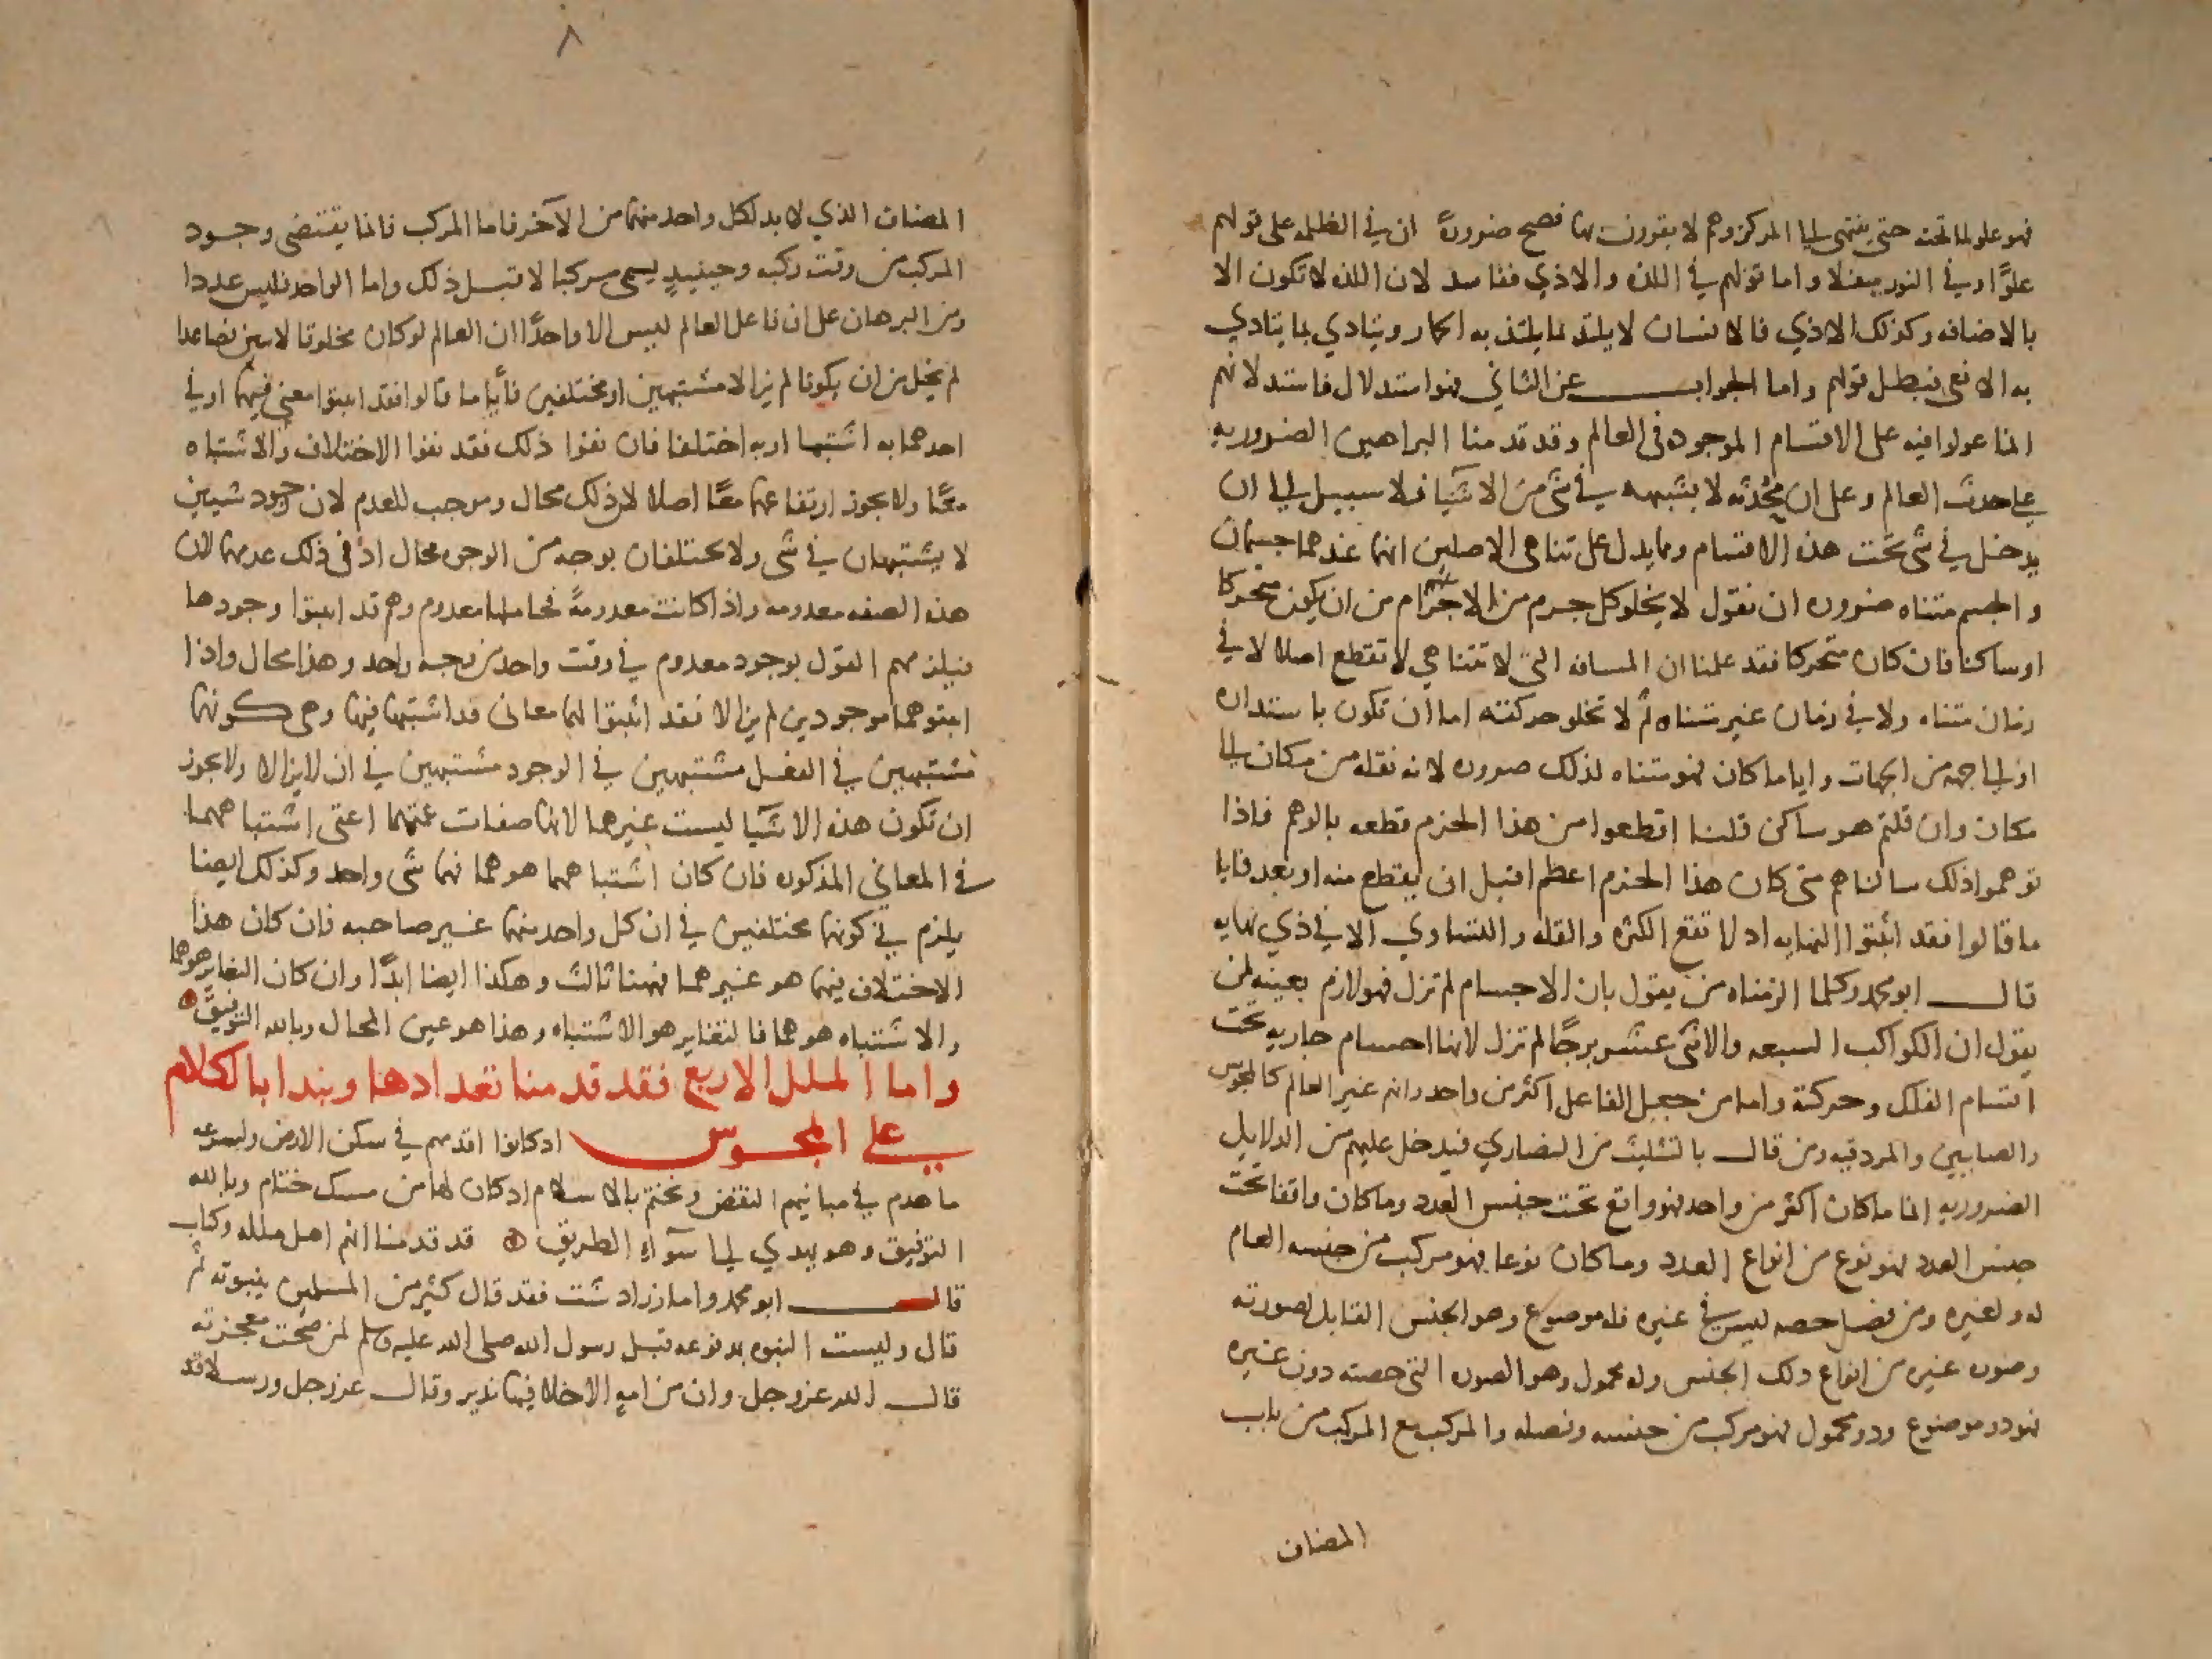 فهو علو لما تحته حتى ينتهي إلى المركز وهم لا يقرون بها فصح ضرورة ان في الظلمه على قولهم
علوّا وفي النور سفلا واما قولهم في اللذه والاذي ففاسد لان اللذه لا تكون الا
بالاضافه وكذلك الاذي فالانسان لا يلتذ بما يلتذ به الحمار ويتاذي بما يتاذي
به الافعى فبطل قولهم واما الجواب عن الثاني فهو استدلال فاسد لانهم
انما عولوا فيه على الاقسام الموجوده في العالم وقد قدمنا البراهين الضروريه
على حدث العالم وعلى ان محدثه لا يشبهه في شي من الاشيا فلا سبيل الى ان
يدخل في شي تحت هذه الاقسام ومما يدل على تناهي الاصلين انهما عندهما جسمان
والجسم متناه ضروره ان نقول لا يخلو كل جرم من الاجرام من ان يكون متحركا
او ساكنا فان كان متحركا فقد علمنا ان المسافه التي لا تتناهي لا تقطع اصلا لا في
زمان متناه ولا في زمان غير متناه ثم لا تخلو حركته اما ان تكون باستداره
او الى جهه من الجهات وايا ما كان فهو متناه لذلك ضروره لانه نقله من مكان الى
مكان وان قلتم هو ساكن قلنا اقطعوا من هذا الجرم قطعه بالوهم فاذا
توهموا ذلك سالناهم متى كان هذا الجرم اعظم اقبل ان يقطع منه او بعد فايا
ما قالوا فقد اثبتوا النهايه اذ لا تقع الكثره والقله والتساوي الا في ذي نهايه
قال ابو محمد وكلما الزمناه من يقول بان الاجسام لم تزل فهو لازم بعينه لمن
يقول ان الكواكب السبعه والاثنى عشر برجًا لم تزل لانها اجسام جاريه تحت
اقسام الفلك وحركته واما من جعل الفاعل اكثر من واحد وانهم غير العالم كالمجوس
والصابيين والمردقيه ومن قال بالتثليث من النصاري فيدخل عليهم من الدلايل
الضروريه انما ما كان اكثر من واحد فهو واقع تحت جنس العدد وما كان واقعا تحت
جنس العدد فهو نوع من انواع العدد وما كان نوعا فهو مركب من جنسه العام
له ولغيره ومن فصل خصه ليس في غيره فله موضوع وهو الجنس القابل لصورته
وصوره غيره من انواع ذلك الجنس وله محمول وهو الصوره التي خصته دون غيره
فهو ذو موضوع وذو محمول فهو مركب من جنسه وفصله والمركب مع المركب من باب
المضاف
٨
المضاف الذي لا بد لكل واحد منهما من الآخر فاما المركب فانما يقتضي وجود
المركب من وقت ركبه وحينيذ يسمى مركبا لا قبل ذلك واما الواحد فليس عددا
ومن البرهان على ان فاعل العالم ليس الا واحدًا ان العالم لو كان مخلوقا لاثنين فصاعدا
لم يخل من ان يكونا لم يزالا مشتبهين او مختلفين فأيا ما قالوا فقد اثبتوا معنى فيهما او في
احدهما به اشتبها او به اختلفا فان نفوا ذلك فقد نفوا الاختلاف والاشتباه
معًا ولا يجوز ارتفاعهما معًا اصلا لان ذلك محال وموجب للعدم لان وجود شيين
لا يشتبهان في شي ولا يختلفان بوجه من الوجوه محال اذ في ذلك عدمهما لان
هذه الصفه معدومه واذا كانت معدومةً فحاملها معدوم وهم قد اثبتوا وجودها
فيلزمهم القول بوجود معدوم في وقت واحد من وجه واحد وهذا محال واذا
اثبتوهما موجودين لم يزالا فقد اثبتوا لهما معاني قد اشتبها فيها وهي كونهما
مشتبهين في الفعل مشتبهين في الوجود مشتبهين في ان لا يزالا ولا يجوز
ان تكون هذه الاشيا ليست غيرهما لانها صفات عمتهما اعنى اشتباههما
في المعاني المذكوره فان كان اشتباههما هو هما فهما شي واحد وكذلك ايضا
يلزم في كونهما مختلفين في ان كل واحد منهما غير صاحبه فان كان هذا
الاختلاف فيهما هو غيرهما فهنا ثالث وهكذا ايضا ابدًا وان كان التغاير هو هما
والاشتباه هو هما فالتغاير هو الاشتباه وهذا هو عين المحال وبالله التوفيق
واما الملل الاربع فقد قدمنا تعدادها ونبدا بالكلام
على المجوس اذ كانوا اقدمهم في سكن الارض ولسرعه
ما هدم في مبانيهم النقض ونختم بالاسلام اذ كان لها من مسك ختام وبالله
التوفيق وهو يهدي الى سوآء الطريق قد قدمنا انهم اهل ملله وكتاب
قال ابو محمد واما زرادشت فقد قال كثير من المسلمين بنبوته ثم
قال وليست النبوه بمدفوعه قبل رسول الله صلى الله عليه وسلم لمن صحت معجزته
قال الله عز وجل وان من امه الا خلا فيها نذير وقال عز وجل ورسلا قد